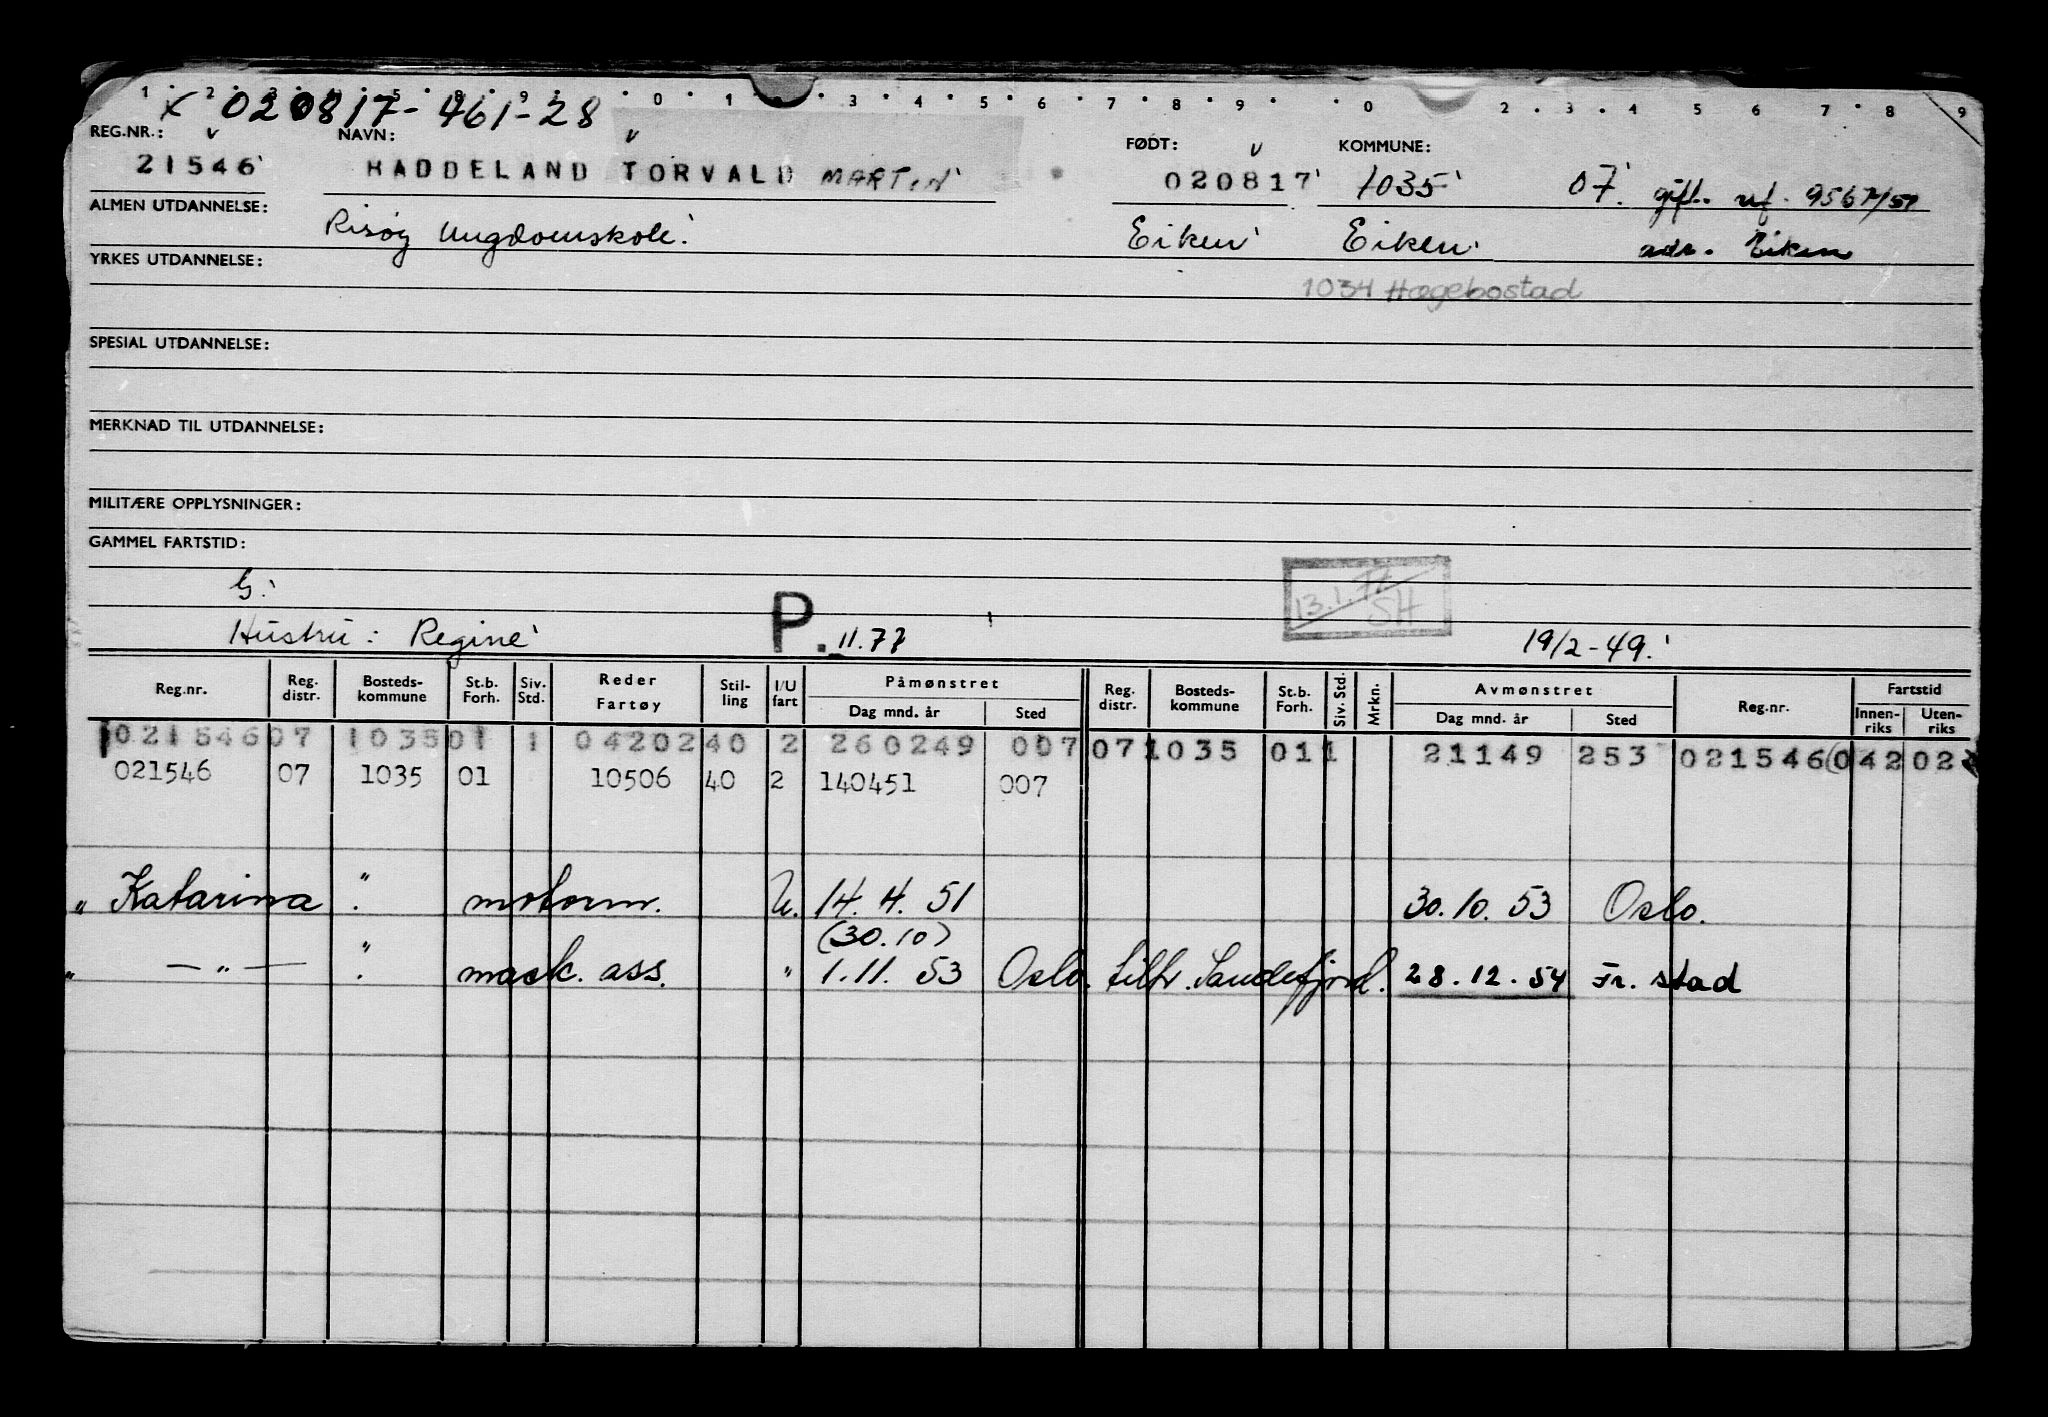 1 2 3 4 5 8 9 0 1 3 4 5 6 7 8 9 0 2 3 4 5 6 7 8 9
x 020817-461-28
REG.NR.: v NAVN: v FØDT: v KOMMUNE:
21546 HADDELAND TORVALD MARTIN 020817 1035 07. gift. nf. 9567/51
ALMEN UTDANNELSE: Risøy Ungdomskole. Eiken Eiken adr. Eiken
YRKES UTDANNELSE:
1034 Hægebostad
SPESIAL UTDANNELSE:
MERKNAD TIL UTDANNELSE:
MILITÆRE OPPLYSNINGER:
GAMMEL FARTSTID:
G.
13.1.77 SH
Hustru: Regine P. 11.77 19/2-49.
Reg.nr. Reg. distr. Bosteds- kommune St.b. Forh. Siv. Std. Reder Fartøy Stil- ling I/U fart Påmønstret Dag mnd. år Sted Reg. distr. Bosteds- kommune St.b. Forh. Siv. Std. Mrkn. Avmønstret Dag mnd. år Sted Reg.nr. Fartstid Innen- riks Uten- riks
021546 07 1035 01 1 04202 40 2 260249 007 07 1035 01 1 21149 253 021546 042 02
021546 07 1035 01 10506 40 2 140451 007
" Katarina " motorm. U. 14.4.51 30.10.53 Oslo.
(30.10)
" — " — " mask. ass. " 1.11.53 Oslo. tilh. Sandefjord. 28.12.54 Fr. stad